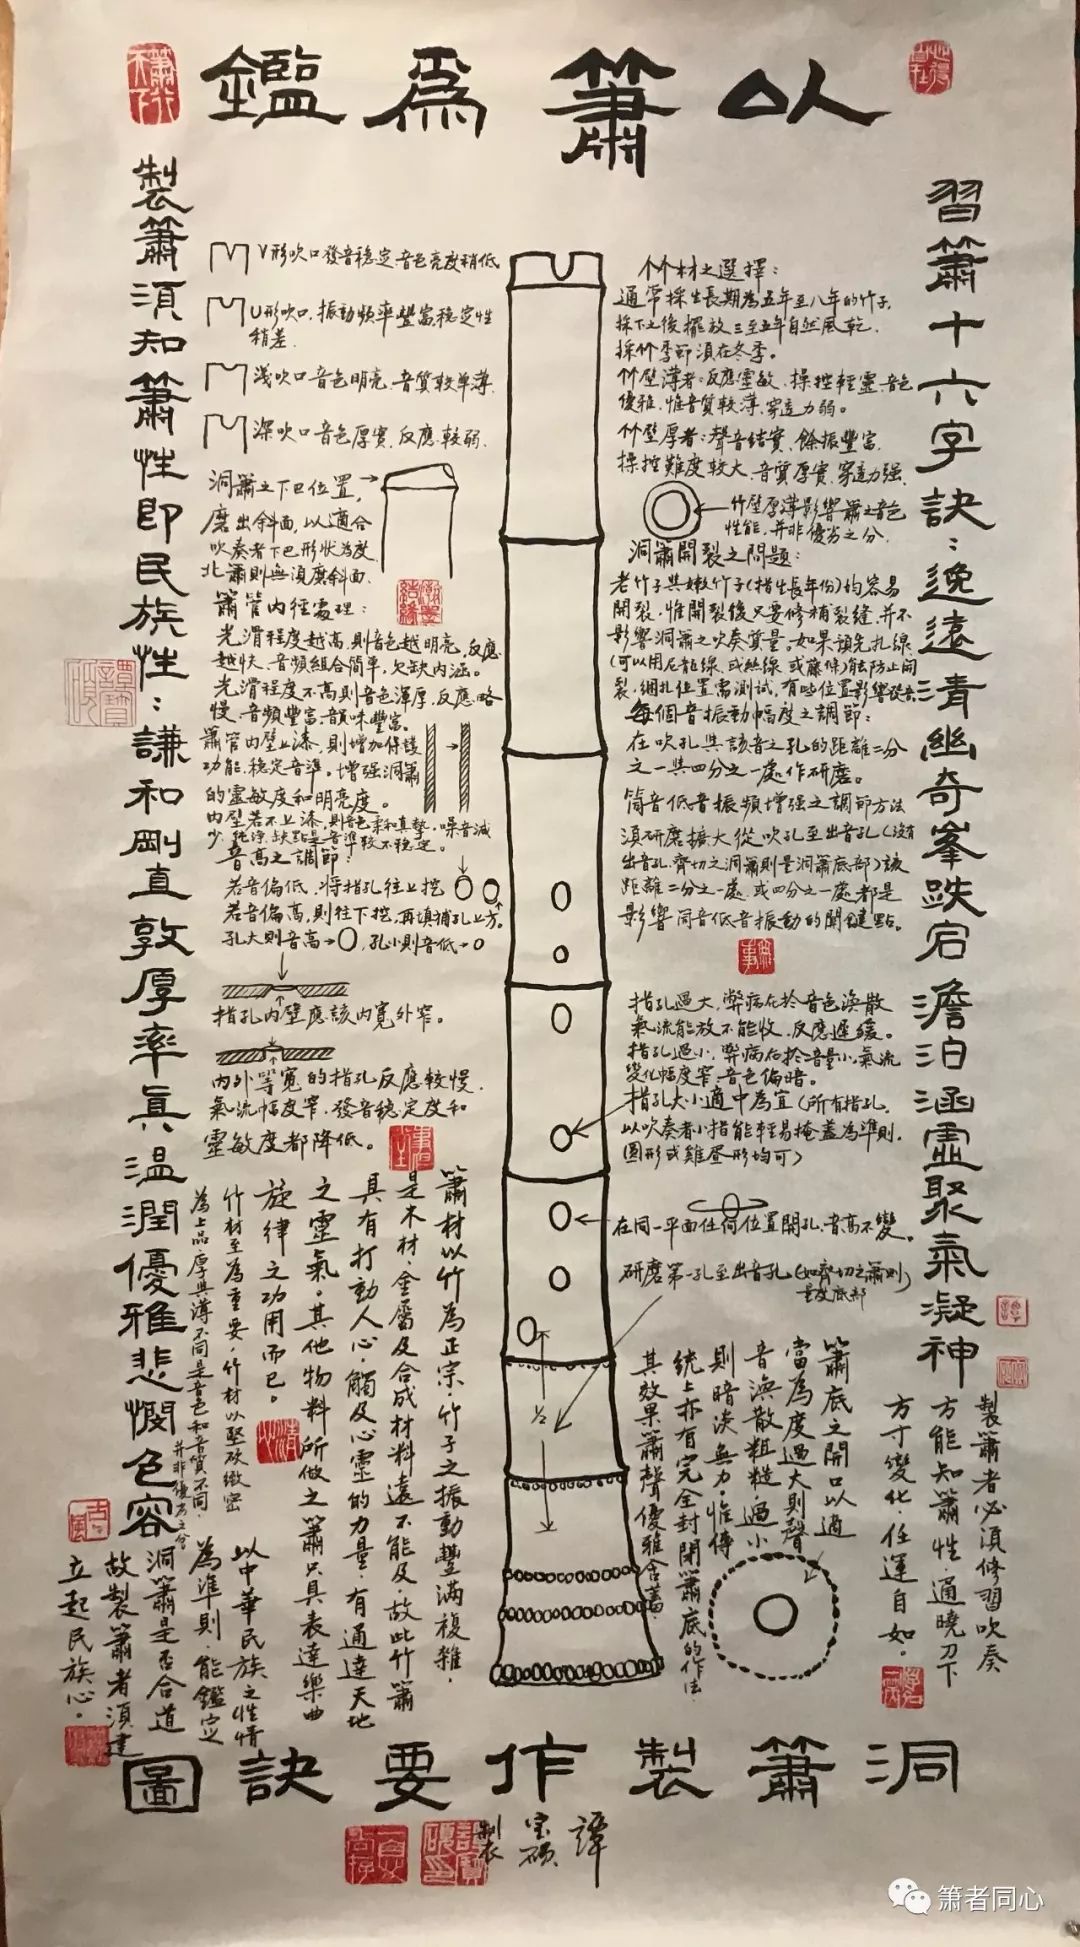 以簫為鑑
習簫十六字訣：逸遠清幽奇峯跌宕澹泊涵虛聚氣凝神
製簫者必須修習吹奏
方能知簫性通曉刀下
方寸變化，任運自如。
竹材之選擇：
通常採生長期為五年至八年的竹子，
採下之後擺放三至五年自然風乾，
採竹季節須在冬季。
竹壁薄者：反應靈敏，操控輕靈，音色
優雅，惟音質較薄，穿透力弱。
竹壁厚者：聲音結實，餘振豐富，
操控難度較大，音質厚實，穿透力強。
竹壁厚薄影響簫之音色
性能，並非優劣之分
洞簫開裂之問題：
老竹子與嫩竹子（指生長年份）均容易
開裂，惟開裂後只要修補裂縫，并不
影響洞簫之吹奏質量。如果預先扎線
（可以用尼龍線，或絲線，或藤條）能防止開
裂，綑扎位置需測試，有些位置影響發音。
每個音振動幅度之調節：
在吹孔與該音之孔的距離二分
之一與四分之一處作研磨。
筒音低音振頻增强之調節方法
須研磨擴大從吹孔至出音孔（沒有
出音孔，齊切之洞簫則量洞簫底部）該
距離二分之一處，或四分之一處都是
影響同音低音振動的關鍵點。
指孔過大，弊病在於音色渙散
氣流能放不能收，反應遲緩。
指孔過小，弊病在於音量小，氣流
變化幅度窄，音色偏暗。
指孔大小適中為宜（所有指孔，
以吹奏者小指能輕易掩蓋為準則，
圓形或雞蛋形均可）
在同一平面任何位置開孔，音高不變。
研磨第一孔至出音孔（如齊切之簫則
量度底部）
簫底之開口以適
當為度，過大則聲
音渙散粗糙，過小
則暗淡無力，惟傳
統上亦有完全封閉簫底的作法，
其效果簫聲優雅含蓄
½
V形吹口發音穩定，音色亮度稍低
U形吹口，振動頻率豐富，穩定性
稍差
淺吹口音色明亮，音質較單薄
深吹口音色厚實，反應較弱
洞簫之下巴位置，
磨出斜面，以適合
吹奏者下巴形狀為度
北簫則無須磨斜面
簫管內徑處理：
光滑程度越高，則音色越明亮，反應
越快，音頻組合簡單，欠缺內涵。
光滑程度不高則音色渾厚，反應略
慢，音頻豐富，韻味豐富。
簫管內壁上漆，則增加保護
功能，穩定音準。增强洞簫
的靈敏度和明亮度。
內壁若不上漆，則音色柔和真摯，噪音減
少，純淨，缺點是音準較不穩定。
音高之調節：
若音偏低，將指孔往上挖
若音偏高，則往下挖，再填補孔上方。
孔大則音高→，孔小則音低→
指孔內壁應該內寬外窄。
內外等寬的指孔反應較慢，
氣流幅度窄，發音穩定度和
靈敏度都降低。
簫材以竹為正宗，竹子之振動豐滿複雜，
是木材，金屬及合成材料遠不能及，故此竹簫
具有打動人心，觸及心靈的力量，有通達天地
之靈氣。其他物料所做之簫只具表達樂曲
旋律之功用而已。
竹材至為重要，竹材以堅硬緻密
為上品，厚與薄不同是音色和音質不同，
并非優劣之分
製簫須知簫性即民族性：謙和剛直敦厚率真溫潤優雅悲憫色容
以中華民族之性情
為準則，能鑑定
洞簫是否合道
故製簫者須建
立起民族心。
洞簫製作要訣圖
譚寶碩
製
簫者同心